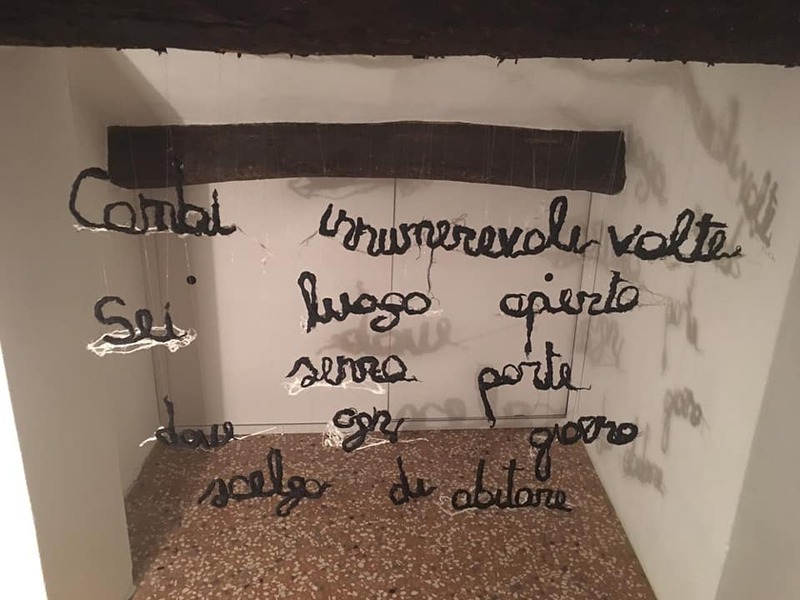 Cambi innumerevoli volte
Sei luogo aperto
senza porte
dove ogni giorno
scelgo di abitare